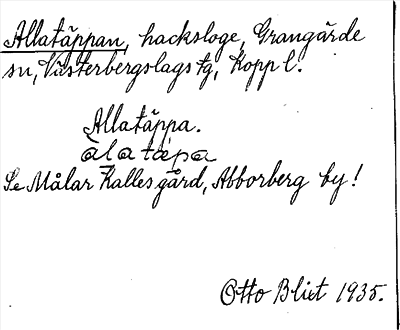 Allatäppan, hacksloge, Grangärde
sn, Västerbergslags tg, Kopp l.
Allatäppa.
àlatäpa
Se Målar Kalles gård, Abborberg by!
Otto Blixt 1935.